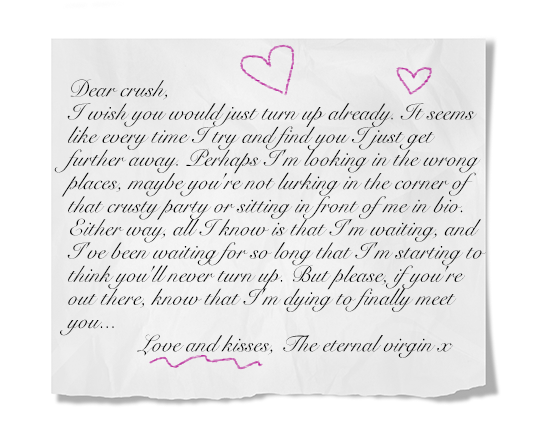 Dear crush,
I wish you would just turn up already. It seems
like every time I try and find you I just get
further away. Perhaps I'm looking in the wrong
places, maybe you're not lurking in the corner of
that crusty party or sitting in front of me in bio.
Either way, all I know is that I'm waiting, and
I've been waiting for so long that I'm starting to
think you'll never turn up. But please, if you're
out there, know that I'm dying to finally meet
you...
Love and kisses, The eternal virgin x